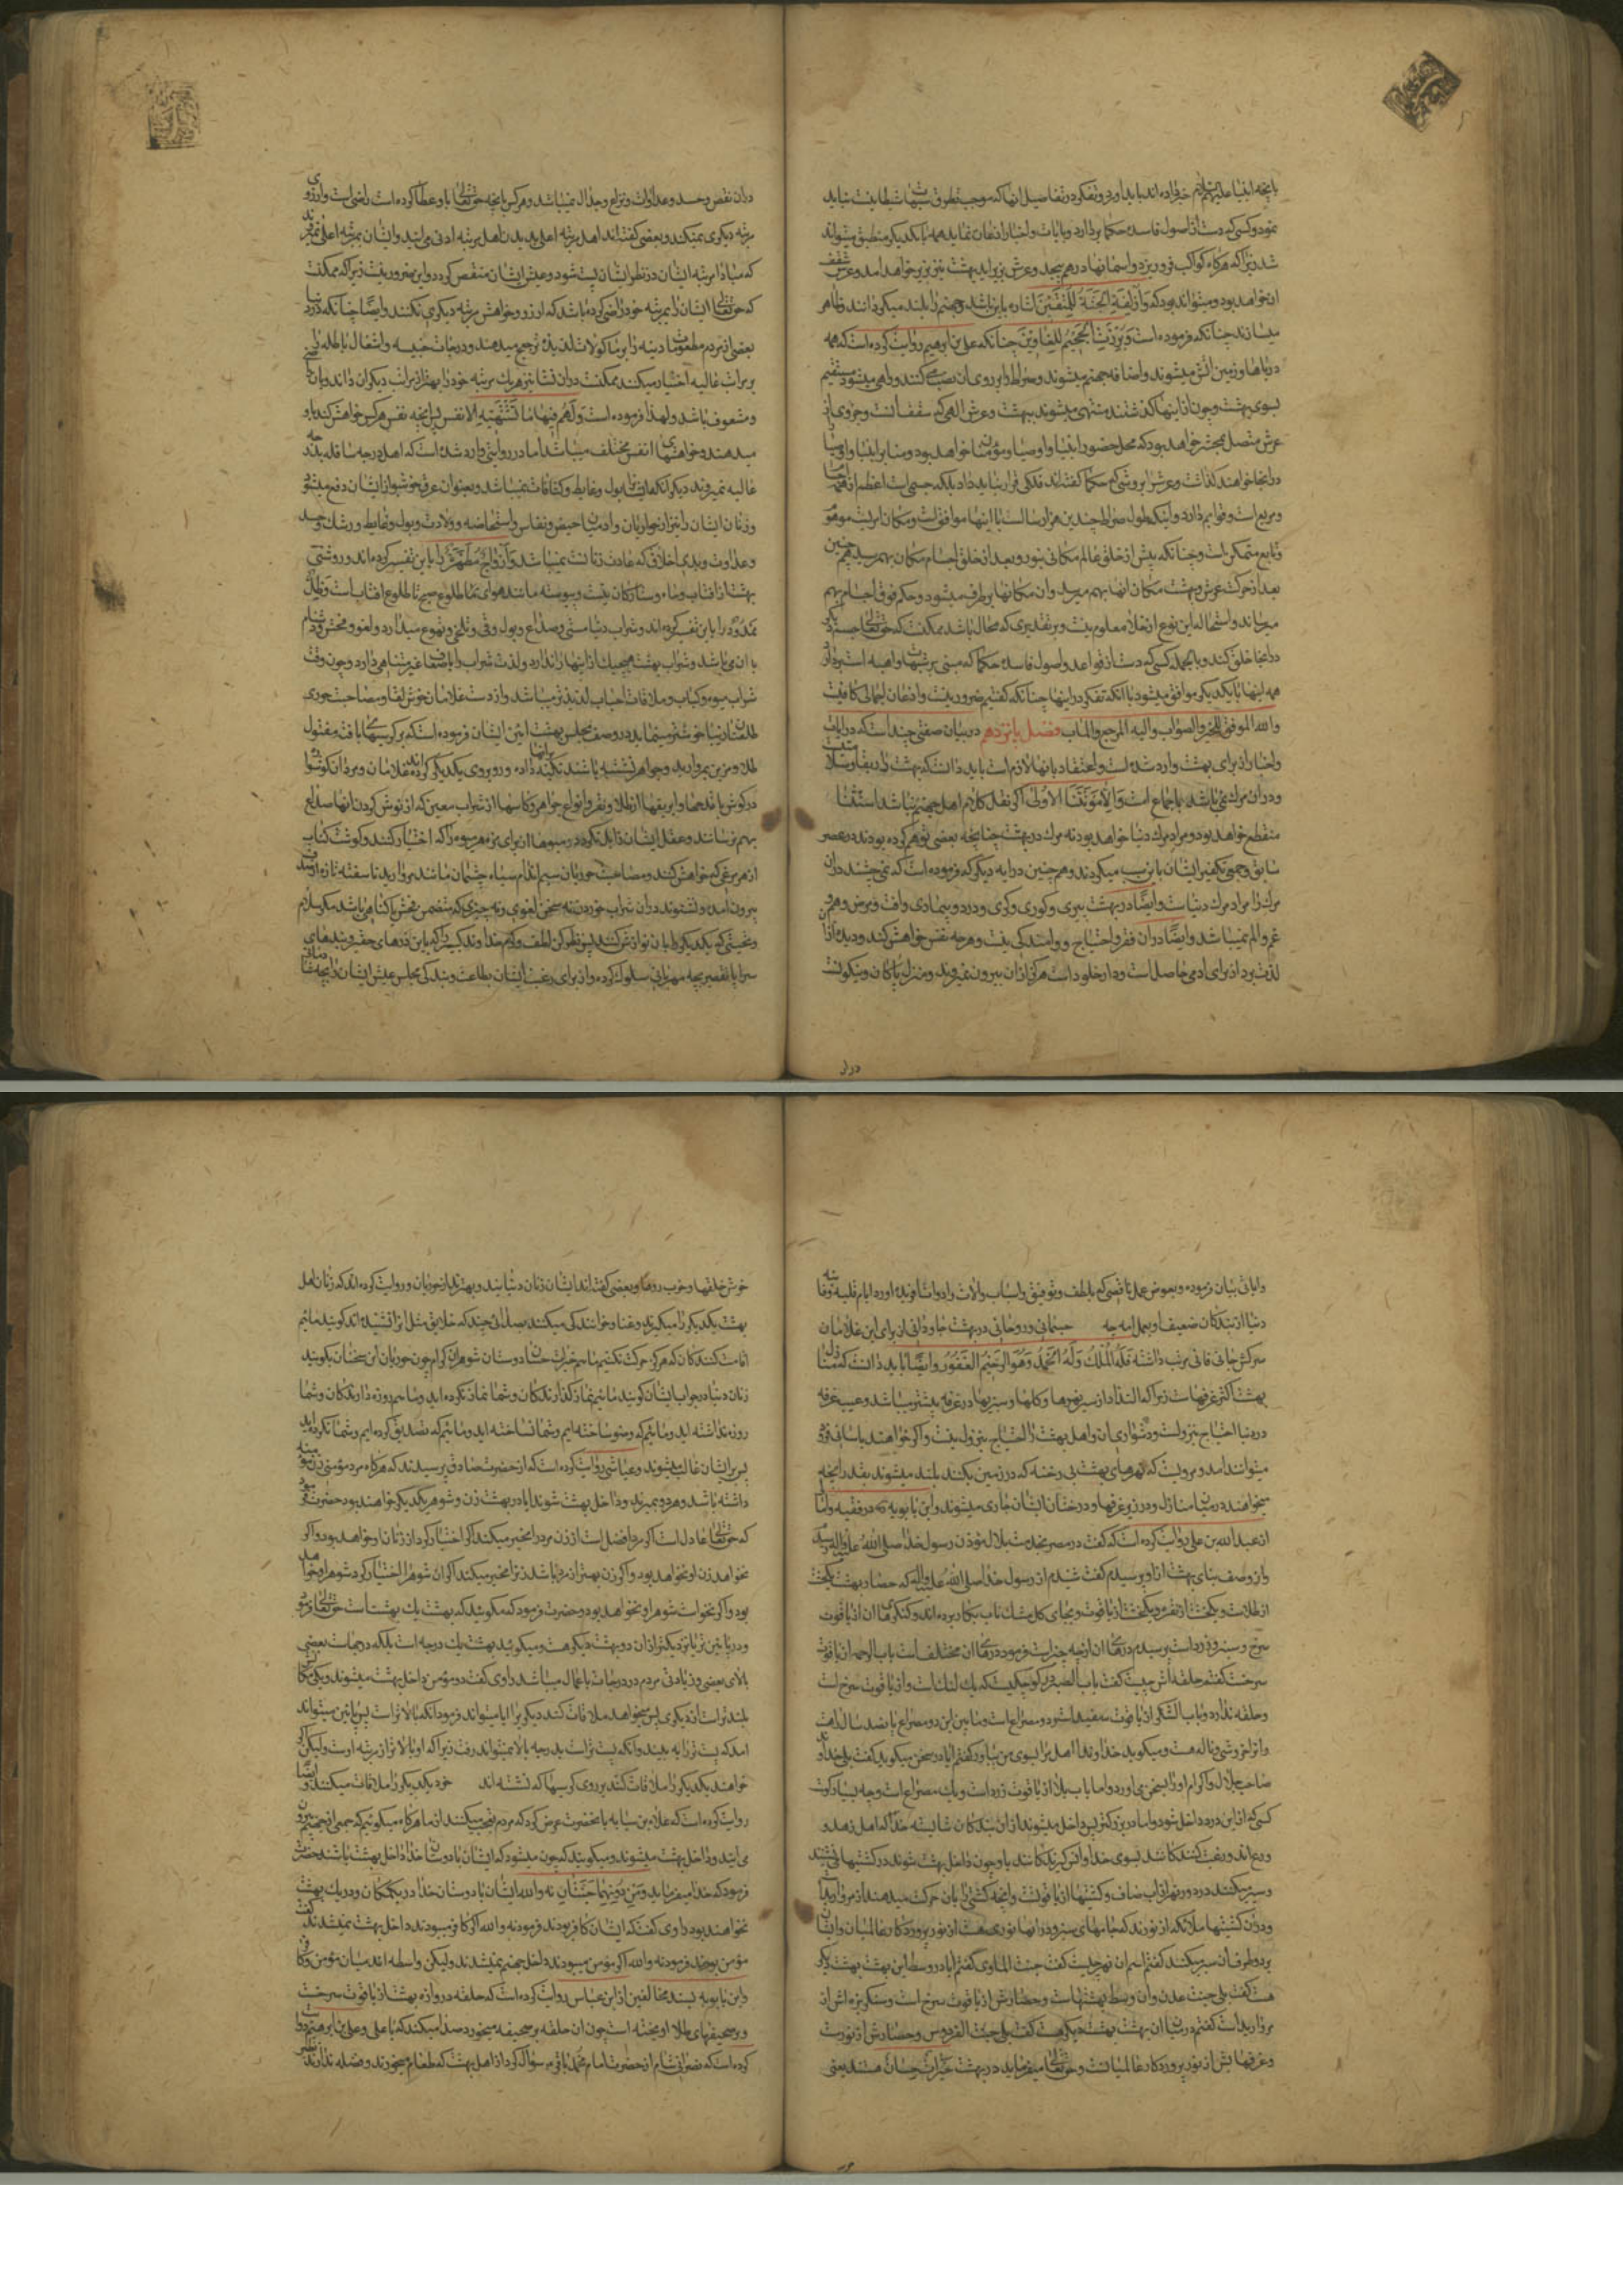 بآنچه انبیا علیهم السلام خبر داده‌اند باید آورد و تفکر در تفاصیل آنها که موجب تطرق شبهات شیطانیست نباید
نمود و کسی که دست از اصول فاسده حکما بردارد و بآیات و اخبار اذعان نماید همه با یکدیگر منطبق میتواند
شد زیرا که هرگاه کواکب فرو ریزد و آسمانها درهم پیچد و عرش بزیر آید بهشت نیز بزیر خواهد آمد و عرش سقف
آن خواهد بود و میتواند بود که وَأُزْلِفَتِ الْجَنَّةُ لِلْمُتَّقِينَ اشاره باین باشد و جهنم را بلند میکردانند و ظاهر
میسازند چنانکه فرموده است وَبُرِّزَتِ الْجَحِيمُ لِلْغَاوِينَ چنانکه علی بن ابرهیم روایت کرده است که همه
دریاها و زمین آتش میشوند و اضافه جهنم میشوند و صراط را بر روی آن نصب میکنند و راهی میشود مستقیم
بسوی بهشت و چون از اینها گذشتند منتهی میشوند ببهشت و عرش الهی که سقف آنست و جزوی از
عرش متصل بمحشر خواهد بود که محل حضور انبیا و اوصیا و مؤمنان خواهد بود و منابر انبیا و اوصیا
در آنجا خواهند گذاشت و عرش را بروشی که حکما گفته‌اند فلکی قرار نباید داد بلکه جسمی است اعظم از همه اجسام
و مربع است و قوایم دارد و اینکه طول صراط چندین هزار سالست با اینها موافق است و مکان امریست موهوم
و تابع متمکن است و چنانکه پیش از خلق عالم مکانی نبود و بعد از خلق اجسام مکان بهم رسید همچنین
بعد از حرکت عرش و بهشت مکان آنها بهم میرسد و آن مکانها برطرف میشود و حکم فوق اجسام بهم
میرساند و استحاله این نوع از خلأ معلوم نیست و بر تقدیری که محال باشد ممکنست که حق تعالی جسم دیگر
در آنجا خلق کند و بالجمله کسی که دست از قواعد و اصول فاسده حکما که مبنی بر شبهات واهیه است بردارد
همه اینها با یکدیگر موافق میشود با آنکه تفکر در اینها چنانکه گفتیم ضرور نیست و اذعان اجمالی کافیست
والله الموفق للخیر والصواب والیه المرجع والمآب فصل پانزدهم در بیان صفتی چند است که در آیات
و اخبار از برای بهشت وارد شده است و اعتقاد بآنها لازم است باید دانست که بهشت دار بقا و سلامت
و در آن مرگ نمی‌باشد باجماع امت وَإِلَّا مَوْتَتَنَا الْأُولَى اگر نقل کلام اهل جهنم نباشد استثنا
منقطع خواهد بود و مراد مرگ دنیا خواهد بود نه مرگ در بهشت چنانچه بعضی توهم کرده بودند در عصر
سابق و جمعی تکفیر ایشان باین سبب میکردند و همچنین در آیه دیگر که فرموده است که نمی چشند در آن
مرگ را مراد مرگ دنیا است و ایضا در بهشت پیری و کوری و کری و درد و بیماری و آفت و مرض و هم و
غم و الم نمیباشد و ایضا در آن فقر و احتیاج و واماندگی نیست و هرچه نفس خواهش کند و دیده از آن
لذت برد از برای آدمی حاصل است و دار خلود است هرگز از آن بیرون نمیروند و منزل پاکان و نیکوانست
درآن
در آن نقص و حسد و عداوت و نزاع و جدال نمیباشد و هرکس بآنچه حق تعالی باو عطا کرده است راضی است و آرزوی
مرتبه دیگری نمیکند و بعضی گفته‌اند اهل مرتبه اعلی بدیدن اهل مرتبه ادنی می آیند و ایشان بمرتبه اعلی نمیروند
که مبادا مرتبه ایشان در نظر ایشان پست شود و عیش ایشان منغص گردد و این ضرور نیست زیرا که ممکنست
که حق تعالی ایشان را بمرتبه خود راضی کرده باشد که آرزو و خواهش مرتبه دیگری نکنند و ایضا چنانکه در دنیا
بعضی از مردم مطعومات دنیه را بر مأکولات لذیذه ترجیح میدهند و درجات خسیسه و اشغال باطله را
بر مراتب عالیه اختیار میکنند ممکنست در آن نشأ نیز هر یک مرتبه خود را بهتر از مراتب دیگران دانند و بآن راضی
و مشعوف باشند و لهذا فرموده است وَلَهُمْ فِيهَا مَا تَشْتَهِيهِ الأنفس پس آنچه نفس هرکس خواهش کند باو
میدهند و خواهشهای انفس مختلف میباشد اما در روایتی وارد شده است که اهل درجه سافله بدرجه
عالیه نمیروند دیگر آنکه اهل بهشت را بول و غایط و کثافات نمیباشد و بعنوان عرق خوشبو از ایشان دفع میشود
و زنان ایشان را نیز از حوریان و آدمیان حیض و نفاس و استحاضه و ولادت و بول و غایط و رشک و حسد
و عداوت و بدی اخلاق که عادت زنانست نمیباشد وَأَزْوَاجٌ مُطَهَّرَةٌ را باین تفسیر کرده‌اند و روشنی
بهشت از آفتاب و ماه و ستارگان نیست و پیوسته مانند هوای مابین طلوع صبح تا طلوع آفتابست وَظِلٍّ
مَمْدُودٍ را باین تفسیر کرده‌اند و شراب دنیا مستی و صداع و بول و قی و تلخی و تهوع میدارد و لغو و فحش و دشنام
با آن می باشد و شراب بهشت هیچیک از اینها را ندارد و لذت شراب را باضعاف غیر متناهی دارد و چون وقت
شراب میوه و کباب و ملاقات احباب لذیذتر میباشد و از دست غلامان خوش لقا و مصاحبت حوری
طلعتان زیبا خوشتر مینماید در وصف مجلس بهشت آیین ایشان فرموده است که بر کرسیهای بافته مفتول
طلا و مزین بمروارید و جواهر نشسته باشند تکیه داده بر آنها و روبروی یکدیگر کرده‌اند غلامان و مردان گوشوار
در گوش با قدحها و ابریقها از طلا و نقره و انواع جواهر و کاسها از شراب معین که از نوش کردن آنها صداع
بهم نرسانند و عقل ایشان زایل نگردد و میوها از برای مزه هر میوه را که اختیار کنند و گوشت کباب
از هر مرغی که خواهش کنند و مصاحبت حوریان سیم اندام سیاه چشمان مانند مروارید ناسفته تازه از صدف
بیرون آمده و نشنوند در آن شراب خوردن نه سخن لغوی و نه چیزی که متضمن فحش یا گناهی باشد مگر سلام
و تحیتی که یکدیگر را بآن نوازش کنند پس نظر کن لطف و کرم خداوند کریم را که باین ذرهای حقیر و بندهای
سراپا تقصیر بچه مهربانی سلوک کرده و از برای رغبت ایشان بطاعت و بندگی مجلس عیش ایشان را بچه شأن
و آیاتی بیان فرموده و بعوض عمل ناقصی که بلطف و توفیق و اسباب و آلات و ادوات آفریده او در ایام قلیله فنای
دنیا از بندگان ضعیف او بعمل آمده چه جسمانی و روحانی در بهشت جاودانی از برای این غلامان
سرکش جانی فانی مرتب داشته فَلَهُ الْمُلْكُ وَلَهُ الْحَمْدُ وَهُوَ الرَّحِيمُ الْغَفُورُ و ایضا باید دانست که منازل
بهشت اکثر غرفهاست زیرا که التذاذ از سیر نهرها و گلها و سبزیها در غرفه بیشتر میباشد و عیب غرفه
در دنیا احتیاج بنزولست و دشواری آن و اهل بهشت را احتیاج بنزول نیست و اگر خواهند بآسانی فرود
میتوانند آمد و مرویست که نهرهای بهشت بی رخنه که در زمین بکنند بلند میشوند بقدر آنچه
میخواهند در میان منازل و در زیر غرفها و درختان ایشان جاری میشوند و ابن بابویه ره در فقیه و امالی
از عبد الله بن علی روایت کرده است که گفت در مصر بخدمت بلال مؤذن رسول خدا صلی الله علیه وآله رسید
و از وصف بنای بهشت از او پرسیدم گفت شنیدم از رسول خدا صلی الله علیه وآله که حصار بهشت یکخشت
از طلاست و یکخشت از نقره و یکخشت از یاقوت و بجای گل مشک ناب بکار برده‌اند و کنگرهای آن از یاقوت
سرخ و سبز و زرد است پرسیدم درهای آن از چه چیز است فرمود درهای آن مختلف است باب الرحمه از یاقوت
سرخست گفتم حلقه اش چیست گفت باب الصبر در کوچکیست که یک لنگ است و از یاقوت سرخ است
و حلقه ندارد و باب الشکر از یاقوت سفید است و دو مصراع است و مابین این دو مصراع پانصد سال راهست
و او را خروشی و ناله هست و میگوید خداوندا اهل مرا بسوی من بیاور گفتم آیا در سخن میگوید گفت بلی خداوند
صاحب جلال و اکرام او را بسخن می آورد و اما باب بلا از یاقوت زرد است و یک مصراع است و چه بسیار کمست
کسی که از این در داخل شود و اما در بزرگتر پس داخل میشوند از آن بندگان شایسته خدا که اهل زهد و
ورع‌اند و رغبت کنندگانند بسوی خدا و انس گیرندگانند باو چون داخل بهشت شوند در کشتیها می نشینند
و سیر میکنند در دو نهر از آب صاف و کشتیها از یاقوتست و آنچه کشتی را بآن حرکت میدهند از مروارید است
و در آن کشتیها ملائکه از نورند که جامهای سبز و در آنها نوری هست از نور پروردگار عالمیان و ایشان
بر دو طرف آن سیر میکنند گفتم اسم آن نهر چیست گفت جنت المأوی گفتم آیا در وسط این بهشت بهشت دیگر
هست گفت بلی جنت عدن و آن وسط بهشتهاست و حصارش از یاقوت سرخ است و سنگریزه اش از
مروارید است گفتم در میان آن بهشت بهشت دیگر هست گفت بلی جنت الفردوس و حصارش از نورست
و غرفهایش از نور پروردگار عالمیانست و حق تعالی میفرماید در بهشت خَيْرَاتٌ حِسَانٌ هستند یعنی
خوش خلقها و خوب روها و بعضی گفته‌اند ایشان زنان دنیایند و بهترند از حوریان و روایت کرده‌اند که زنان اهل
بهشت یکدیگر را میگیرند و غنا و خوانندگی میکنند بصداهای چند که خلایق مثل آنرا نشنیده‌اند گویند ماییم
اقامت کنندگان که هرگز حرکت نکنیم ماییم خیرات حسان دوستان شوهران کرام چون حوریان این سخنان بگویند
زنان دنیا در جواب ایشان گویند ماییم نماز گذارندگان و شما نماز نکرده‌اید و ماییم روزه دارندگان و شما
روزه نداشته‌اید و ماییم که وضو ساخته‌ایم و شما نساخته‌اید و ماییم که تصدق کرده‌ایم و شما نکرده‌اید
پس بر ایشان غالب میشوند و عیاشی روایت کرده است که از حضرت صادق پرسیدند که هرگاه مرد مؤمنی زن مؤمنه
داشته باشد و هر دو بمیرند و داخل بهشت شوند آیا در بهشت زن و شوهر یکدیگر خواهند بود حضرت فرمود
که حق تعالی عادل است اگر مرد افضل است از زن مرد را مخیر میکند اگر اختیار کرد از زنان او خواهد بود و اگر
نخواهد زن او نخواهد بود و اگر زن بهتر از مرد باشد زنرا مخیر میکند اگر آن شوهر را اختیار کرد شوهر او خواهد
بود و اگر نخواست شوهر او نخواهد بود و حضرت فرمود که مگویید که بهشت یک بهشت است حق تعالی میفرماید
و در پایین تر یا نزدیکتر از آن دو بهشت دیگر هست و مگویید بهشت یک درجه است بلکه درجات بعضی
بالای بعضی و زیادتی مردم در درجات باعمال میباشد راوی گفت دو مؤمن داخل بهشت میشوند و یکی مکانش
بلندتر است از دیگری پس میخواهد ملاقات کند دیگر را آیا میتواند فرمود آنکه بالاتر است پس پایین میتواند
آمد که پست تر را به بیند و آنکه پست تر است بدرجه بالا نمیتواند رفت زیرا که او بالاتر از مرتبه اوست ولیکن اگر
خواهند یکدیگر را ملاقات کنند بر روی کرسیها که نشسته‌اند خود یکدیگر را ملاقات میکنند و ایضا
روایت کرده است که علاء بن سیابه بآنحضرت عرض کرد که مردم تعجب میکنند از ما هرگاه میگوییم که جمعی از جهنم بیرون
می آیند و داخل بهشت میشوند و میگویند که چون میشود که ایشان با دوستان خدا داخل بهشت باشند حضرت
فرمود که خدا میفرماید وَمِنْ دُونِهِمَا جَنَّتَانِ نه والله ایشان با دوستان خدا در یک مکان و در یک بهشت
نخواهند بود راوی گفت که ایشان کافر بودند فرمود نه والله اگر کافر میبودند داخل بهشت نمیشدند گفت
مؤمن بودند فرمود نه والله اگر مؤمن میبودند داخل جهنم نمیشدند ولیکن واسطه‌اند میان مؤمن و کافر
و ابن بابویه بسند مخالفین از ابن عباس روایت کرده است که حلقه در دروازه بهشت از یاقوت سرخست
و بر صحیفهای طلا آویخته است چون آن حلقه بر صحیفه میخورد صدا میکند که یا علی و علی بن ابرهیم روایت
کرده است که نصرانی شام از حضرت امام محمد باقر ع سؤال کرد از اهل بهشت که طعام میخورند و فضله ندارند نظیر